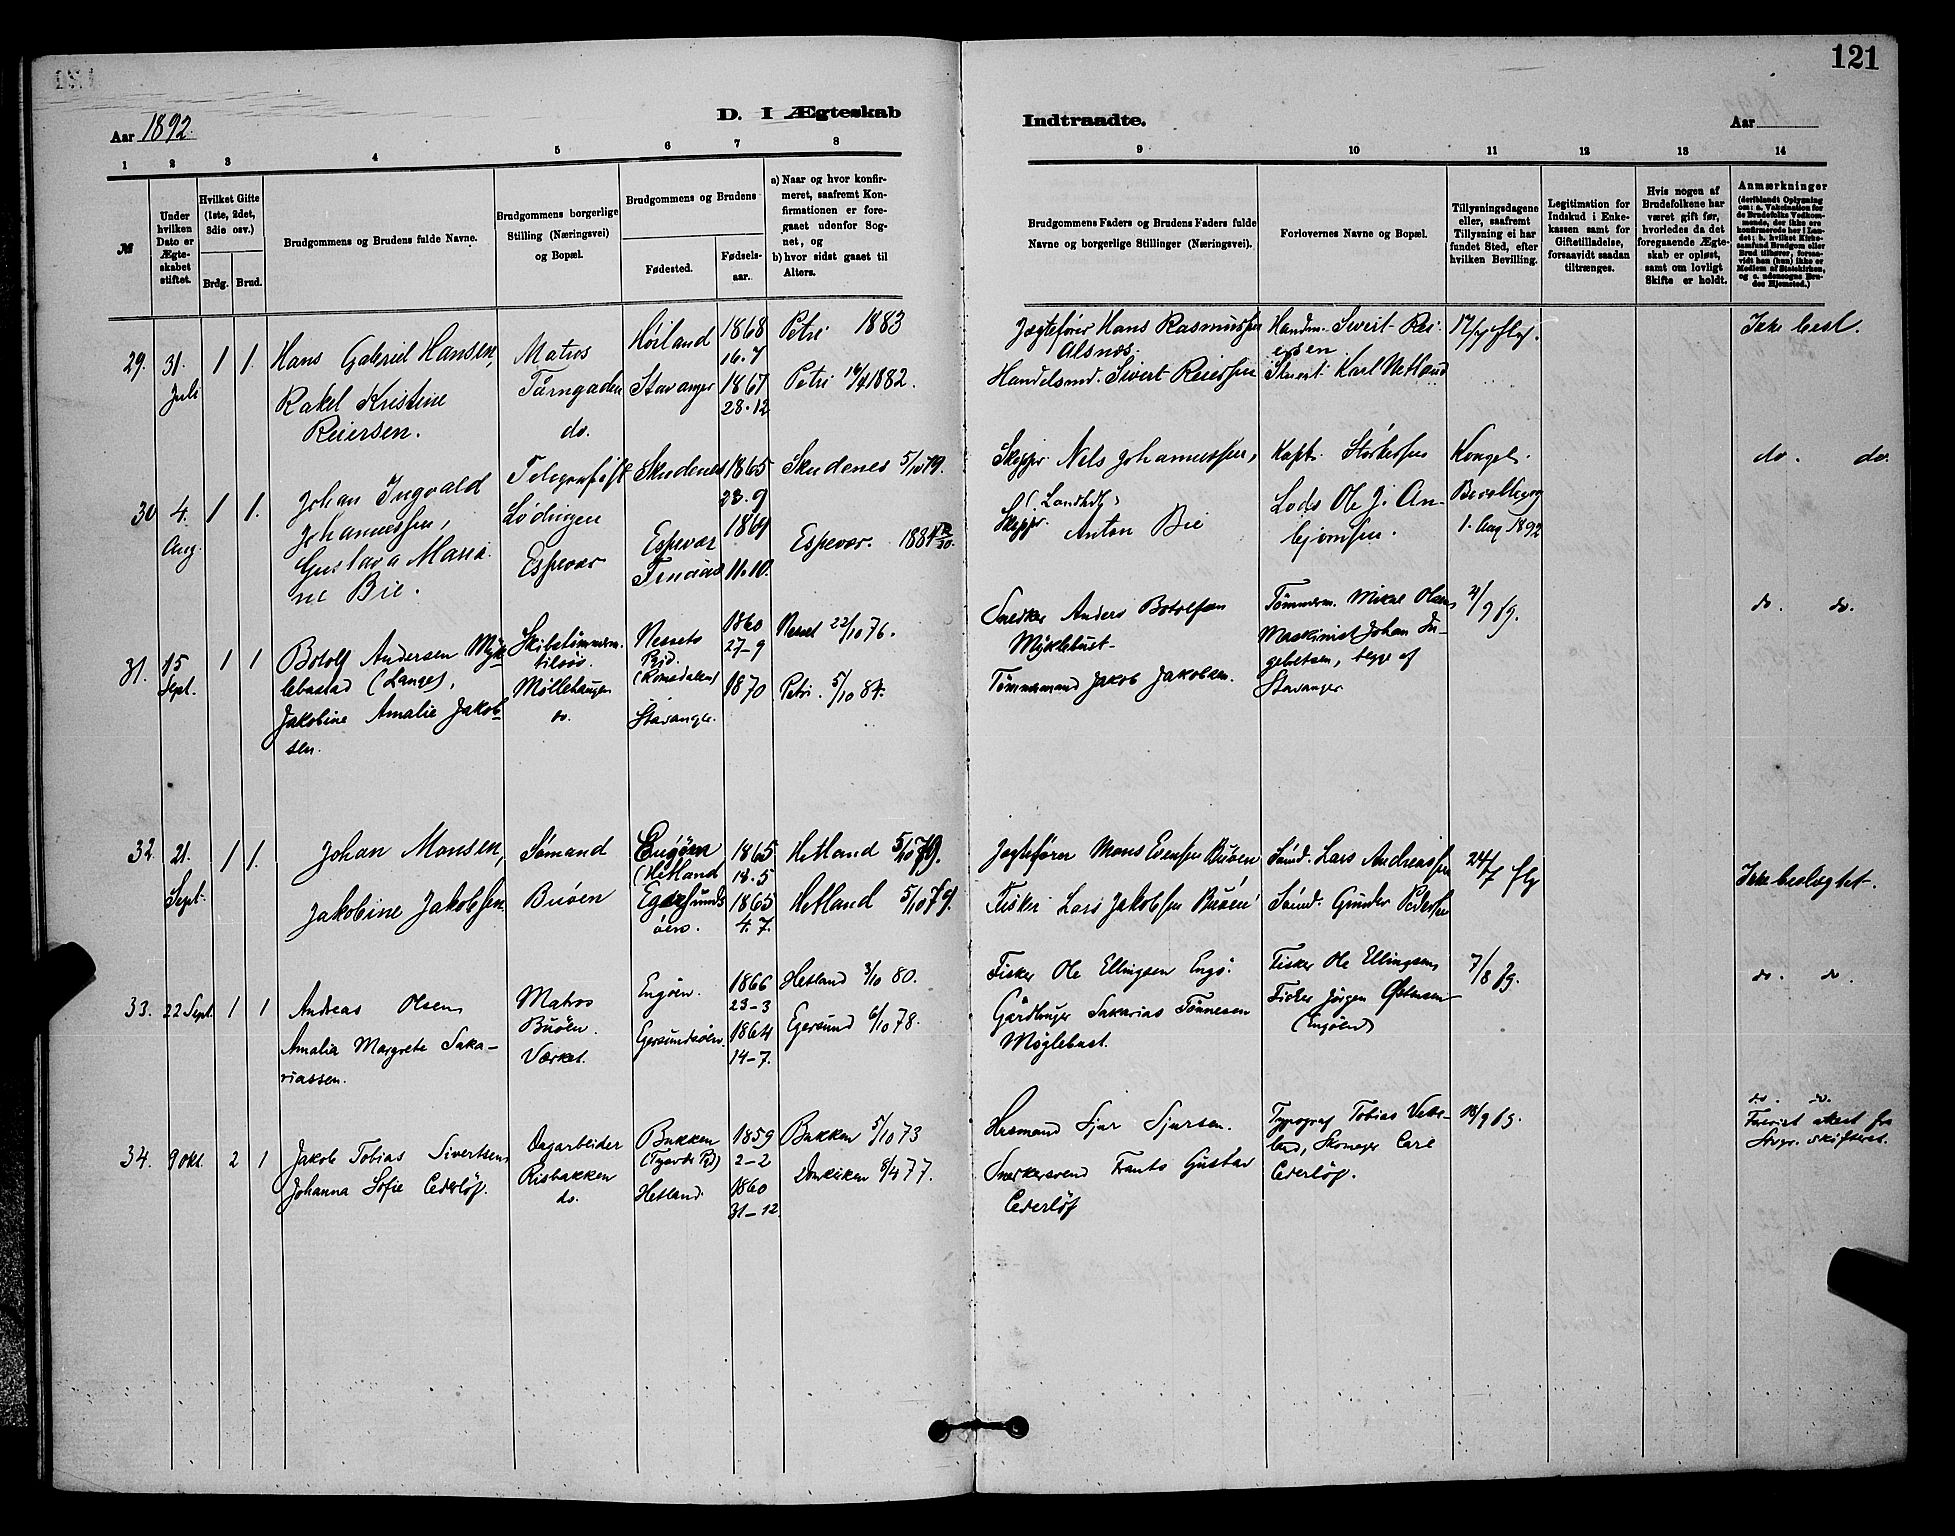 121
Aar 1892.
D. I Ægteskab
Indtraadte.
Aar
1 2 3 4 5 6 7 8
9 10 11 12 13 14
№
Under hvilken Dato er Ægteskabet stiftet.
Hvilket Gifte (1ste, 2det, 3die osv.)
Brdg. Brud.
Brudgommens og Brudens fulde Navne.
Brudgommens borgerlige Stilling (Næringsvei) og Bopæl.
Brudgommens og Brudens
Fødested.
Fødselsaar.
a) Naar og hvor konfirmeret, saafremt Konfirmationen er foregaaet udenfor Sognet, og
b) hvor sidst gaaet til Alters.
Brudgommens Faders og Brudens Faders fulde Navne og borgerlige Stillinger (Næringsvei).
Forlovernes Navne og Bopæl.
Tillysningsdagene eller, saafremt Tillysning ei har fundet Sted, efter hvilken Bevilling.
Legitimation for Indskud i Enkekassen samt for Giftetilladelse, forsaavidt saadan tiltrænges.
Hvis nogen af Brudefolkene har været gift før, hvorledes da det foregaaende Ægteskab er opløst, samt om lovligt Skifte er holdt.
Anmærkninger
29. 31. Juli 1 1.
Hans Gabriel Hansen,
Rakel Kristine
Reiersen.
Matros
Tårngaden
do.
Høiland 1868 16.7
Stavanger 1867 28.12
Petri 1883
Petri 16/4 1882.
Jægtefører Hans Rasmussen
Alsnæs.
Handelsmd. Sivert Reiersen
Handm. Sivert Rei-
ersen
Karl Netland
17/7 flg.
Ikke besl.
30 4. Aug. 1 1.
Johan Ingvald
Johannessen,
Gustava Maria-
ne Bie.
Lødingen
Espevær
Skudenes 1865 23.9
Espevær
Finnaas 1869 11.10.
Skudenes 5/10 79.
Espevær. 1884
Skippr. Nels Johannessen,
Skippr. Anton Bie
Kapt. Størkersen
Lods Ole J. An-
bjørnsen.
Kongel.
Bevilling
1. Aug. 1892
do. do.
31. 15 Sept. 1 1
Botolf Andersen Myk-
lebostad (Langes),
Jakobine Amalie Jakob-
sen.
Skibstømmerm.
tilsøs.
Møllehaugen
do.
Nessets
Pgd.
(Romsdalen) 1860 27-9
Stavanger. 1870
Nesset 22/10 76.
Petri. 5/10 84.
Snedker Anders Botolfsen
Myklebust
Tømmermand Jakob Jakobsen.
Tømmerm. Mikal Olsen,
Maskinist Johan In-
gebretsen, begge af
Stavanger
4/9 fg.
do. do.
32. 21. Sept. 1 1.
Johan Monsen,
Jakobine Jakobsen
Sømand
Buøen
Engøen
(Hetland 1865 18.5
Egersunds
øen. 1865 4.7.
Hetland 5/10 79.
Hetland 5/10 79.
Jægtefører Mons Evensen Buøen
Fisker Lars Jakobsen Buøen
Sømd. Lars Andreassen
Sømd. Gunder Pedersen
24/7 flg
Ikke beslægtet.
33. 22 Sept. 1 1
Andreas Olsen
Amalia Margrete Saka-
riassen.
Matros
Buøen.
Værket.
Engøen. 1866 23-3
Egersundsøen. 1864 14-7.
Hetland 3/10 80.
Egersund 6/10 78.
Fisker Ole Ellingsen Engø.
Gårdbruger Sakarias Tønnesen
Møglebust.
Fisker Ole Ellingsen,
Fisker Jørgen Østensen
(Engøen)
7/8 fg.
do do
34. 9 okt. 2 1
Jakob Tobias Sivertsen,
Johanna Sofie Cederløf.
Dagarbeider
Risbakken
do.
Bakken 1859 2-2
Hetland. 1860 31-12
Bakken 5/10 73
Domkirken 8/4 77.
Husmand Sjur Sjursen.
Snedkersvend Frants Gustav
Cederløf
Typograf Tobias Vets-
land, Skomager Carl
Cederløf.
18/9 fg.
do. do.
Forevist attest fra
Sorgr. Skifteret.